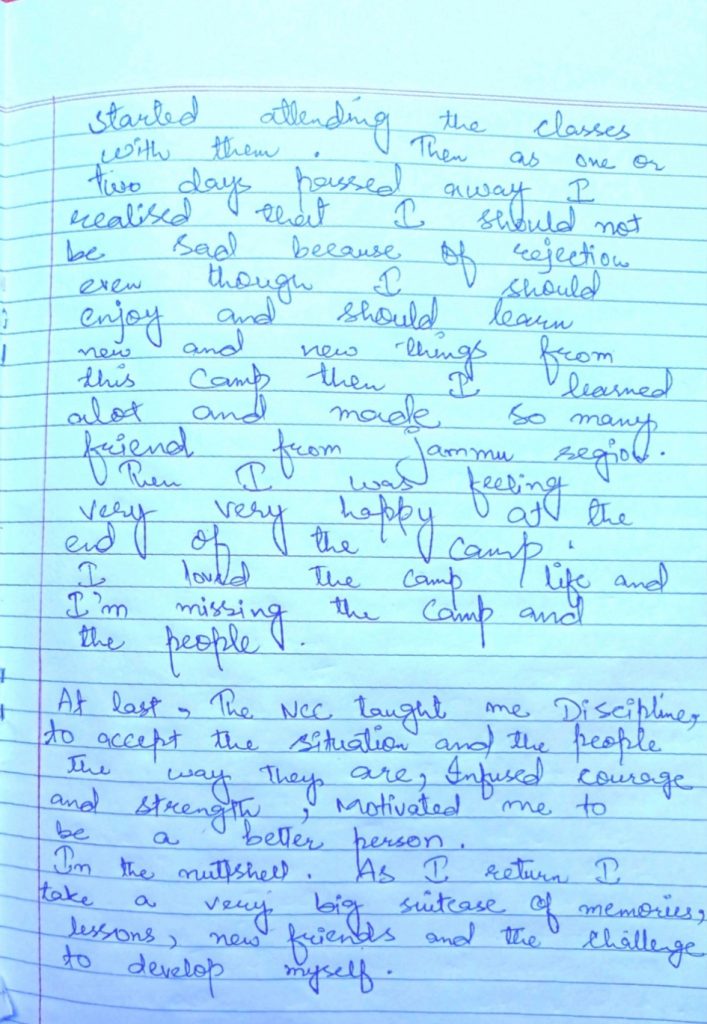 started attending the classes
with them. Then as one or
two days passed away I
realised that I should not
be sad because of rejection
even though I should
enjoy and should learn
new and new things from
this camp then I learned
alot and made so many
friend from jammu region.
Then I was feeling
very very happy at the
end of the camp.
I loved the camp life and
I'm missing the camp and
the people.
At last, The NCC taught me Discipline,
to accept the situation and the people
the way they are, Infused courage
and strength, Motivated me to
be a better person.
In the nuttshell. As I return I
take a very big suitcase of memories,
lessons, new friends and the challenge
to develop myself.